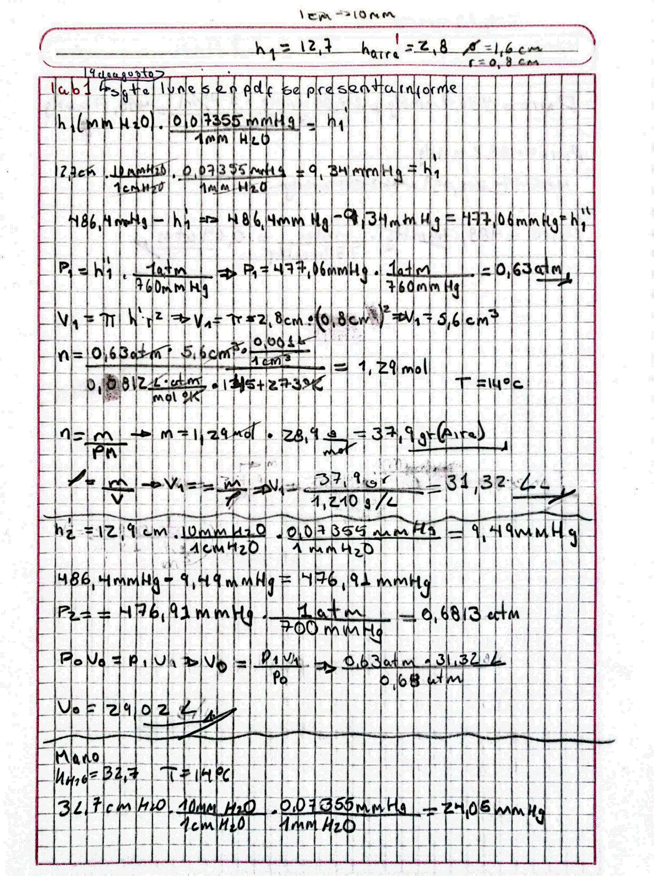 1cm → 10mm
h₁ = 12,7 haire' = 2,8 ø = 1,6 cm
r = 0,8 cm
lab1 sgte lunes en pdf se presenta informe
h₁(mm H₂O) · 0,07355 mmHg / 1mm H2O = h₁'
12,7cm · 10mmH2O / 1cmH2O · 0,07355 mmHg / 1mm H2O = 9,34mmHg = h₁'
486,4mmHg - h₁' => 486,4mm Hg - 9,34mmHg = 477,06mmHg = h₁''
P₁ = h₁'' · 1atm / 760mmHg => P₁ = 477,06mmHg · 1atm / 760mmHg = 0,63atm
V₁ = π h'r² => V₁ = π · 2,8cm · (0,8cm)² => V₁ = 5,6 cm³
n = 0,63atm · 5,6cm³ · 0,001L / 1cm³ / 0,0812 L·atm / mol °K · +273°K = 1,29 mol
T = 14°C
n = m / PM → m = 1,29mol · 28,9 g / mol = 37,9 gr (Aire)
ρ = m / V → V₁ = = m / ρ => V₁ = 37,9 gr / 1,210 g/L = 31,32 L
h₂' = 12,9 cm · 10mmH2O / 1cmH2O · 0,07355 mmHg / 1mmH2O = 9,49mmHg
486,4mmHg - 9,49mmHg = 476,91 mmHg
P₂ = = 476,91 mmHg · 1atm / 700 mmHg = 0,6813 atm
P₀V₀ = P₁V₁ => V₀ = P₁V₁ / P₀ => 0,63atm · 31,32 L / 0,68 atm
V₀ = 29,02 L
Mano
hH₂O = 32,7 T = 14°C
32,7cm H2O · 10mm H2O / 1cmH2O · 0,07355mmHg / 1mmH2O = 24,05 mmHg